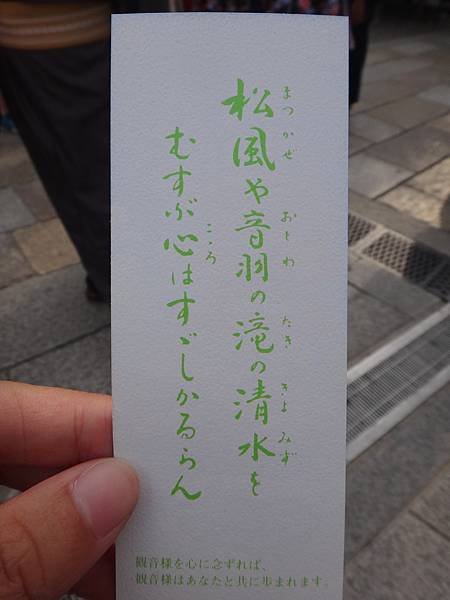 松風や音羽の滝の清水を
まつかぜ おとわ たき きよみず
むすぶ心はすゞしかるらん
こころ
観音様を心に念ずれば、
観音様はあなたと共に歩まれます。